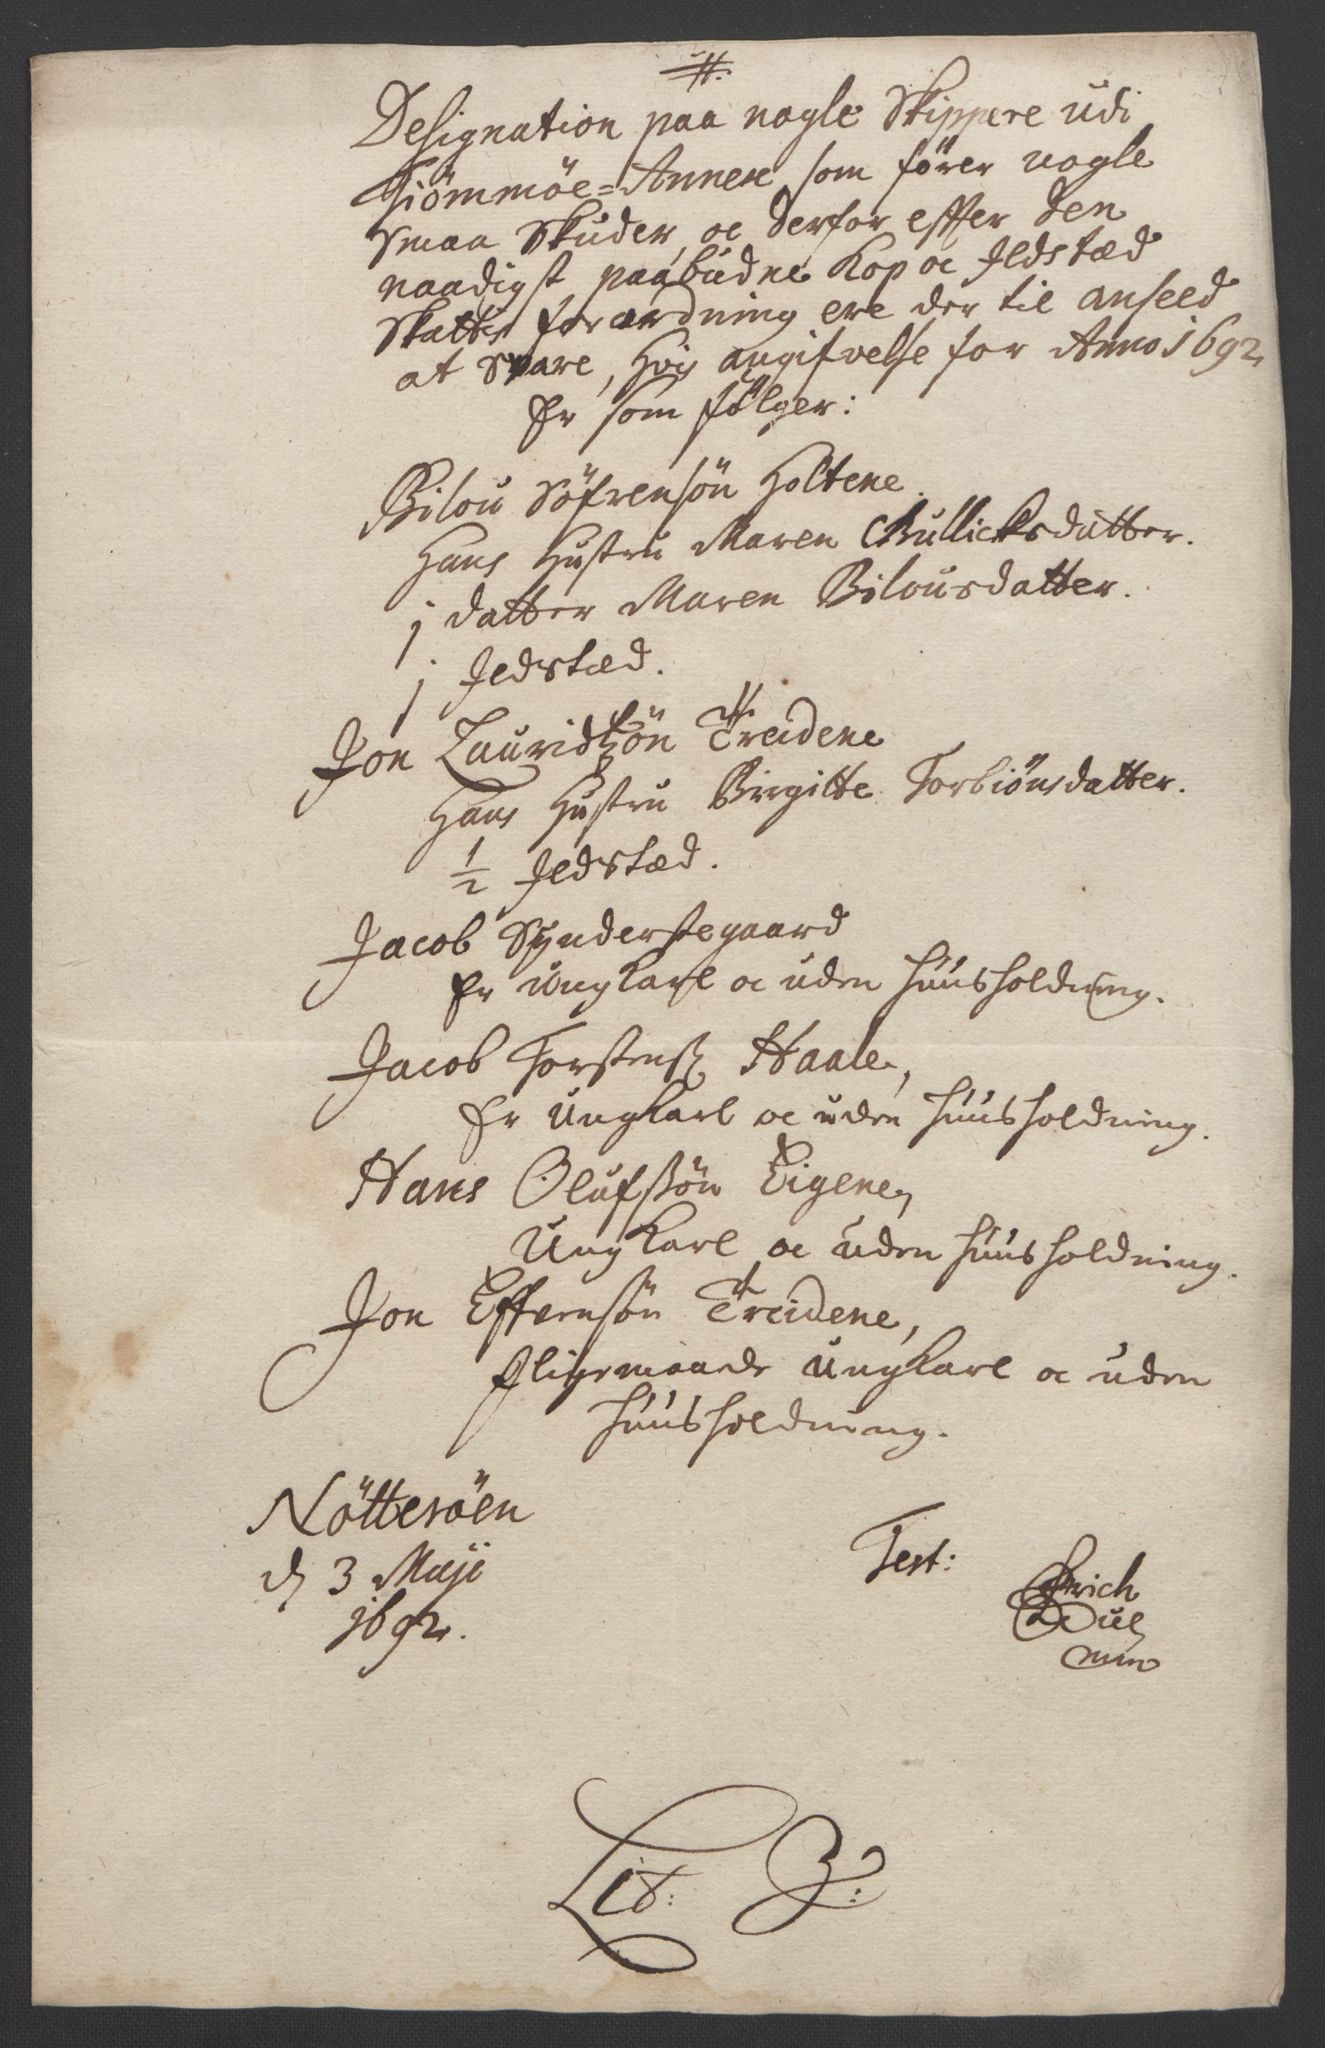 Designation paa nogle Skippere udi
Tiömmöe=Annex som fører nogle
smaa Skuder, oc derfor effter den
naadigst paabudne Kop oc Ildstæd
Skatts forordning ere der til anseed
at Svare, hvis angifvelse for Anno 1692
Er som fölger:
Bilou Söfrensön Holtene.
Hans Hustru Maren Gullicksdatter.
1 datter Maren Bilousdatter.
1 Ildstæd.
Jon Lauridtzön Treidene
Hans Hustru Birgitte Torbiönsdatter.
1/2 Ildstæd.
Jacob Synderstegaard
Er ungkarl oc uden huusholdning.
Jacob Torstens: Haale,
Er ungkarl oc uden huusholdning.
Hans Olufssön Eigene,
Ungkarl oc uden huusholdning.
Jon Effvensön Treidene,
Iligemaade ungkarl oc uden
huusholdning.
Nötteröen
d 3 Maji
1692.
Test:
Erich
mm
Lit: Z: